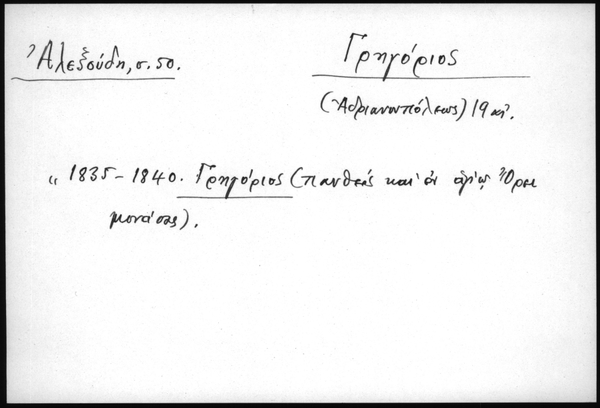 Ἀλεξούδη, σ. 50.
Γρηγόριος
(Ἀδριανουπόλεως) 19 αἰ.
“ 1835-1840. Γρηγόριος (πανθεὶς καὶ ἐν ἁγίῳ Ὄρει
μονάσας).